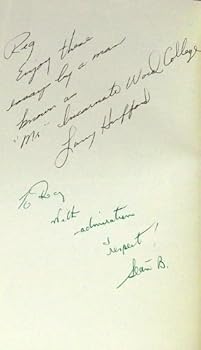 Reg
Enjoy these
essays by a man
known as
"Mr." Incarnate Word College
Larry Hufford
To Reg
With
admiration
& respect!
Sean B.